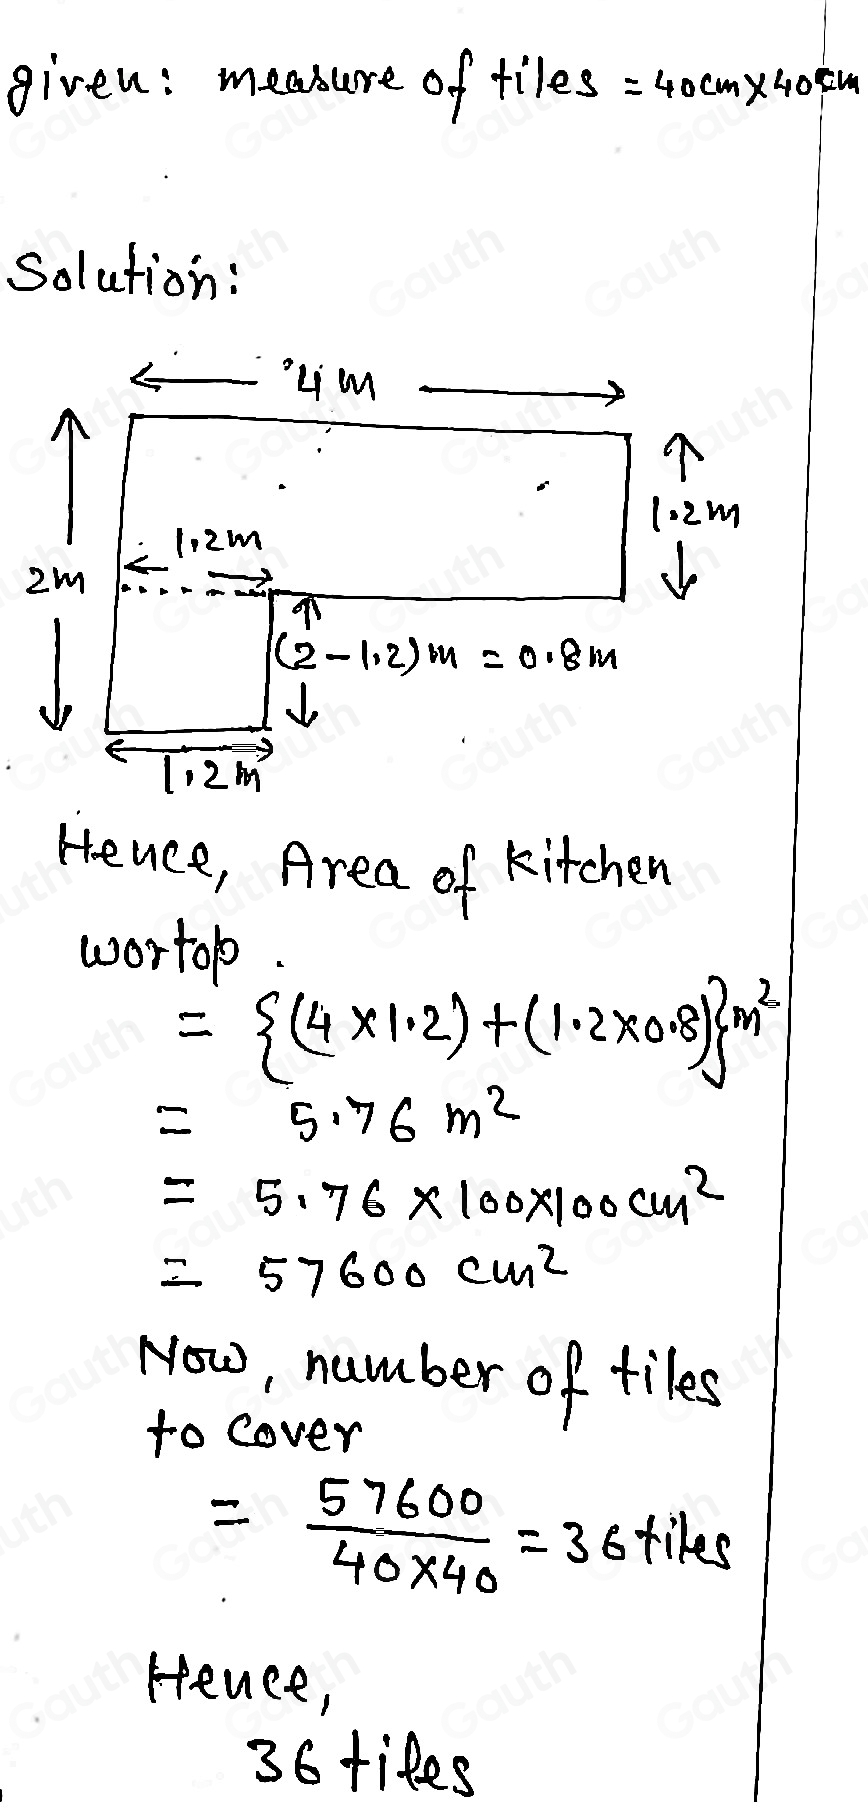 given: measure of tiles = 40cm×40cm
Solution:
4m
1.2m
1.2m
2m
(2-1.2)m = 0.8m
1.2m
Hence, Area of kitchen
wortop
= {(4×1.2)+(1.2×0.8)}m²
= 5.76 m²
= 5.76 ×100×100cm²
= 57600 cm²
Now, number of tiles
to cover
= 57600
40×40 = 36tiles
Hence,
36 tiles